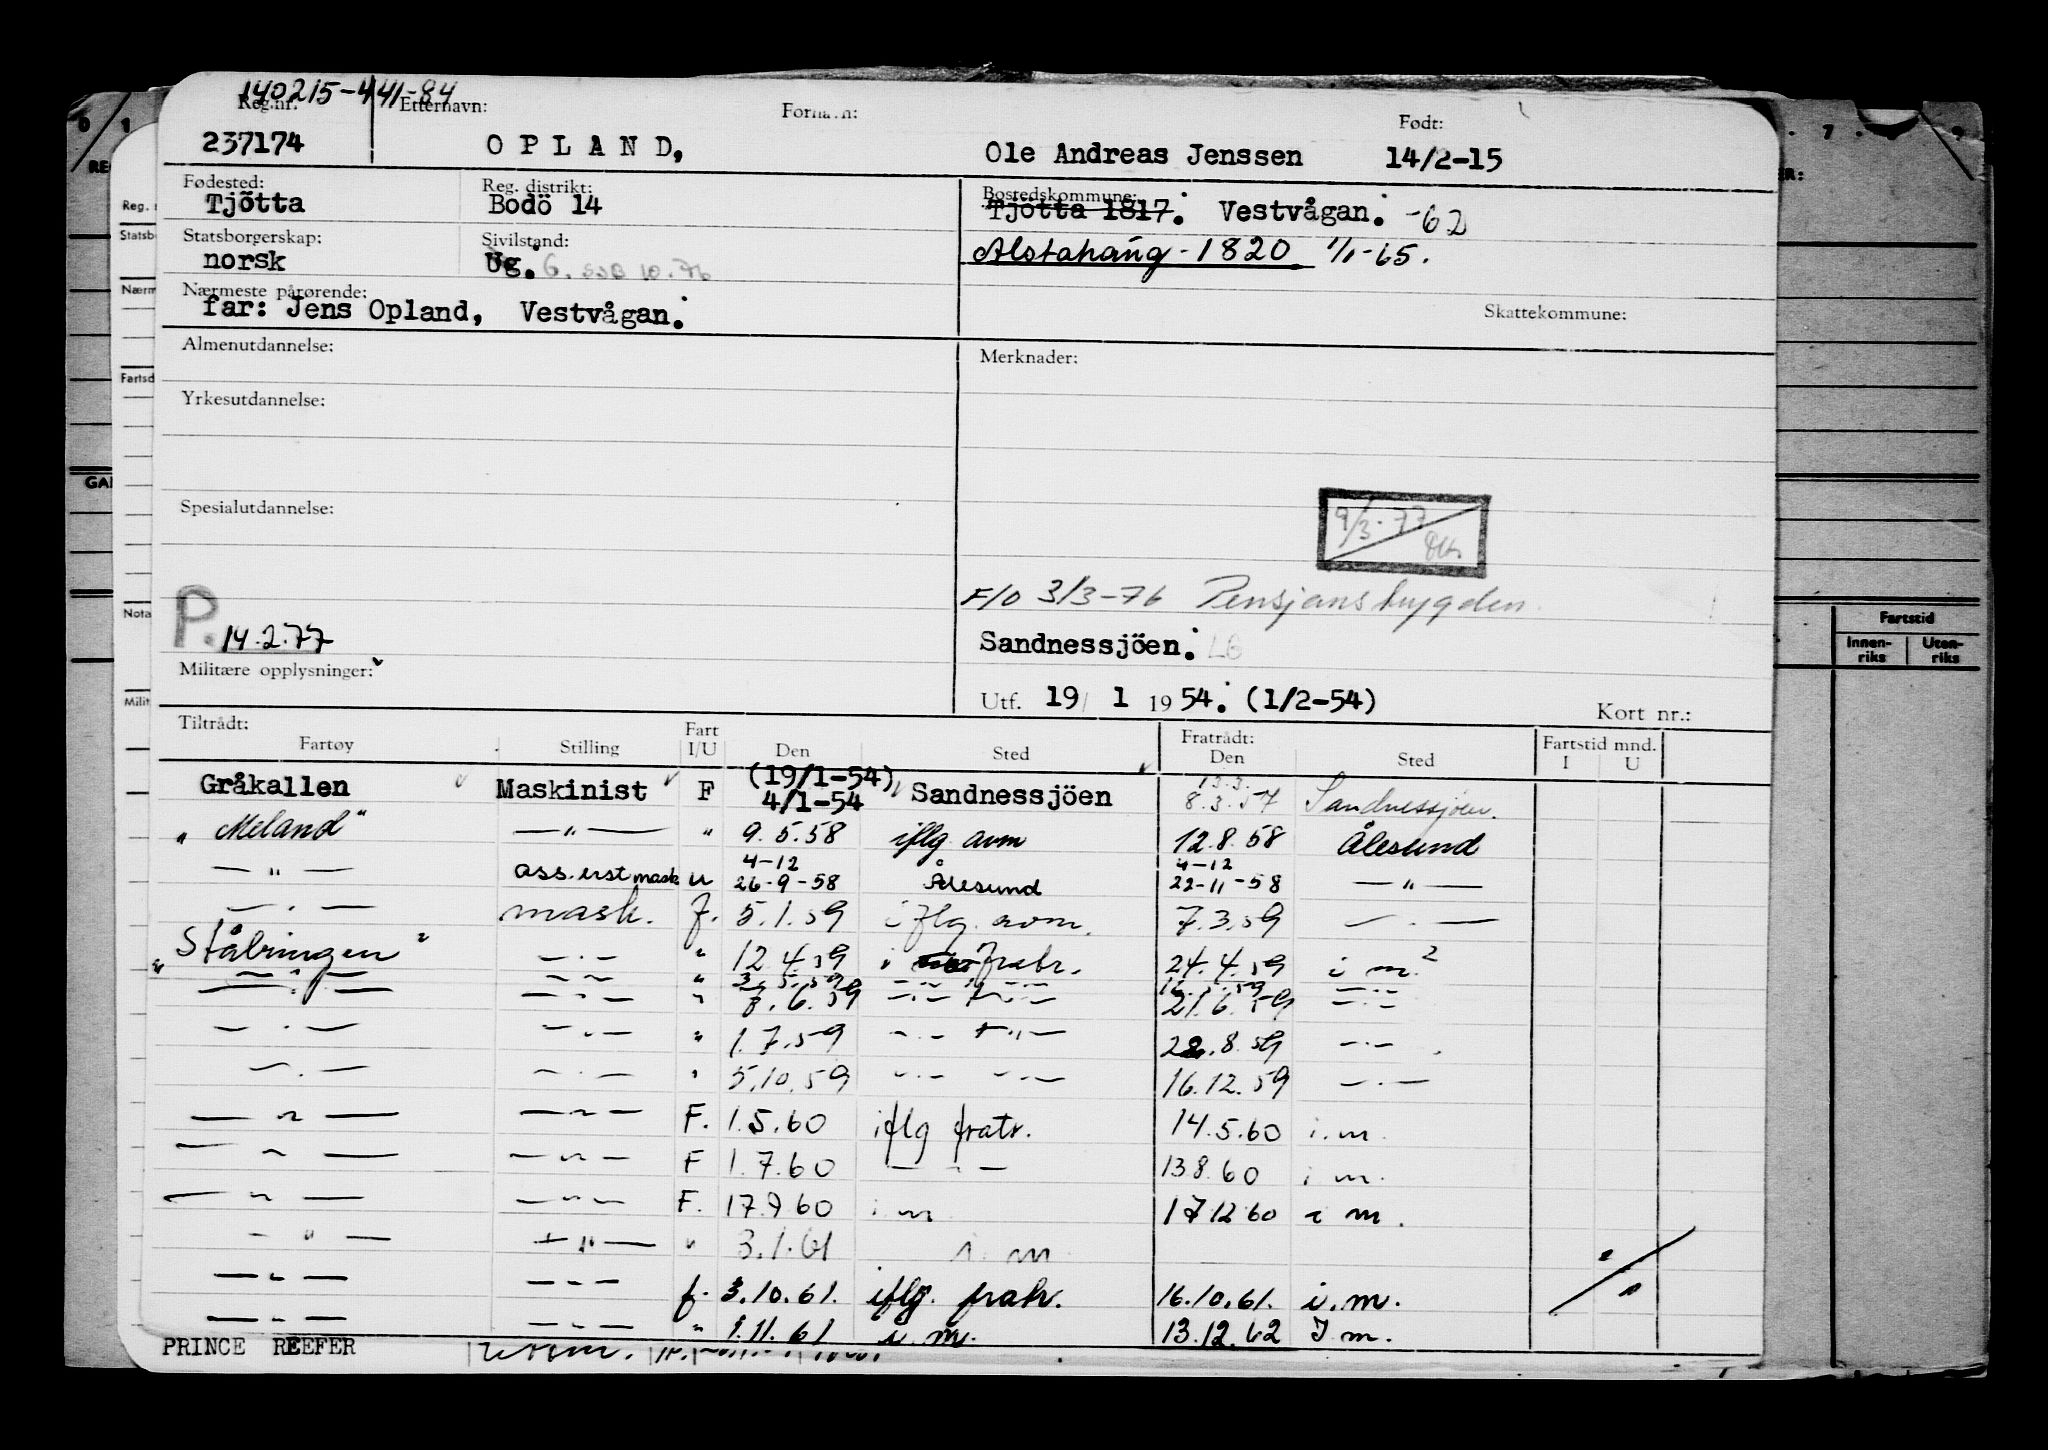 140215-441-84
Reg.nr. Etternavn: Fornavn: Født:
237174 OPLAND, Ole Andreas Jenssen 14/2-15
Fødested: Reg. distrikt: Bostedskommune:
Tjötta Bodö 14 Tjötta 1817. Vestvågan. -62
Statsborgerskap: Sivilstand: Alstahaug - 1820 1/1-65.
norsk Ug. G. SSB 10.76
Nærmeste pårørende: Skattekommune:
far: Jens Opland, Vestvågan.
Almenutdannelse: Merknader:
Yrkesutdannelse:
Spesialutdannelse:
9/3-77
F/O 3/3-76 Pensjonstrygden
P. 14.2.77
Sandnessjöen. LG
Militære opplysninger:
Utf. 19/ 1 1954. (1/2-54) Kort nr.:
Tiltrådt: Fratrådt: Fartstid mnd.
Fartøy Stilling Fart I/U Den Sted Den Sted I U
Gråkallen Maskinist F (19/1-54) 4/1-54 Sandnessjöen 13.3. 8.3.57 Sandnessjöen.
"Meland" —"— " 9.5.58 iflg. avm 12.8.58 Ålesund
—"— ass. erst mask u 4-12 26-9-58 Ålesund 4-12 22-11-58 —"—
—"— mask. f. 5.1.59 iflg. avm. 7.3.59 —"—
"Stålringen" —"— " 12.4.59 i fratr. 24.4.59 i m.
—"— —"— " 3.5.59 —"— —"—
—"— —"— " 8.6.59 —"— 21.6.59 —"—
—"— —"— " 1.7.59 —"— —"— 28.8.59 —"—
—"— —"— " 5.10.59 —"— —"— 16.12.59 —"—
—"— —"— F. 1.5.60 iflg fratr. 14.5.60 i.m.
—"— —"— F 1.7.60 —"— 13.8.60 i m.
—"— —"— F. 17.9.60 i m 17.12.60 i m.
—"— —"— " 3.1.61 i. m
—"— —"— f. 3.10.61. iflg. fratr. 16.10.61. i.m.
—"— —"— " 1.11.61 i m. 13.12.62 I m.
PRINCE REEFER
Fartstid
Innen-riks Uten-riks